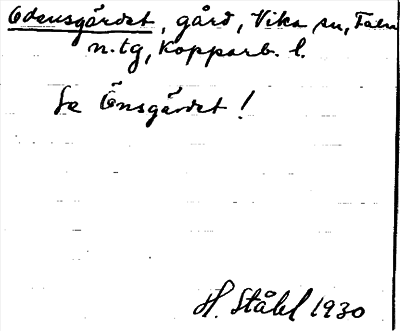 Odensgärdet, gård, Vika sn, Falu
n. tg, Kopparb. l.
Se Önsgärdet!
H. Ståhl 1930